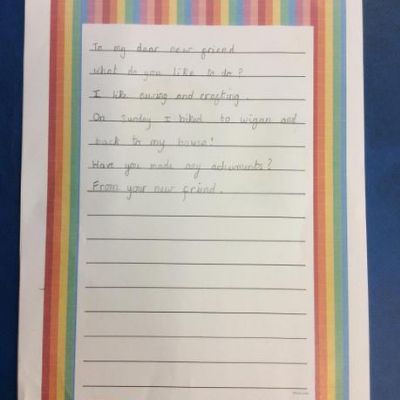 To my dear new friend
what do you like to do?
I like swing and crafting.
On Sunday I biked to wigan and
back to my house!
Have you made any achuments?
From your new friend.